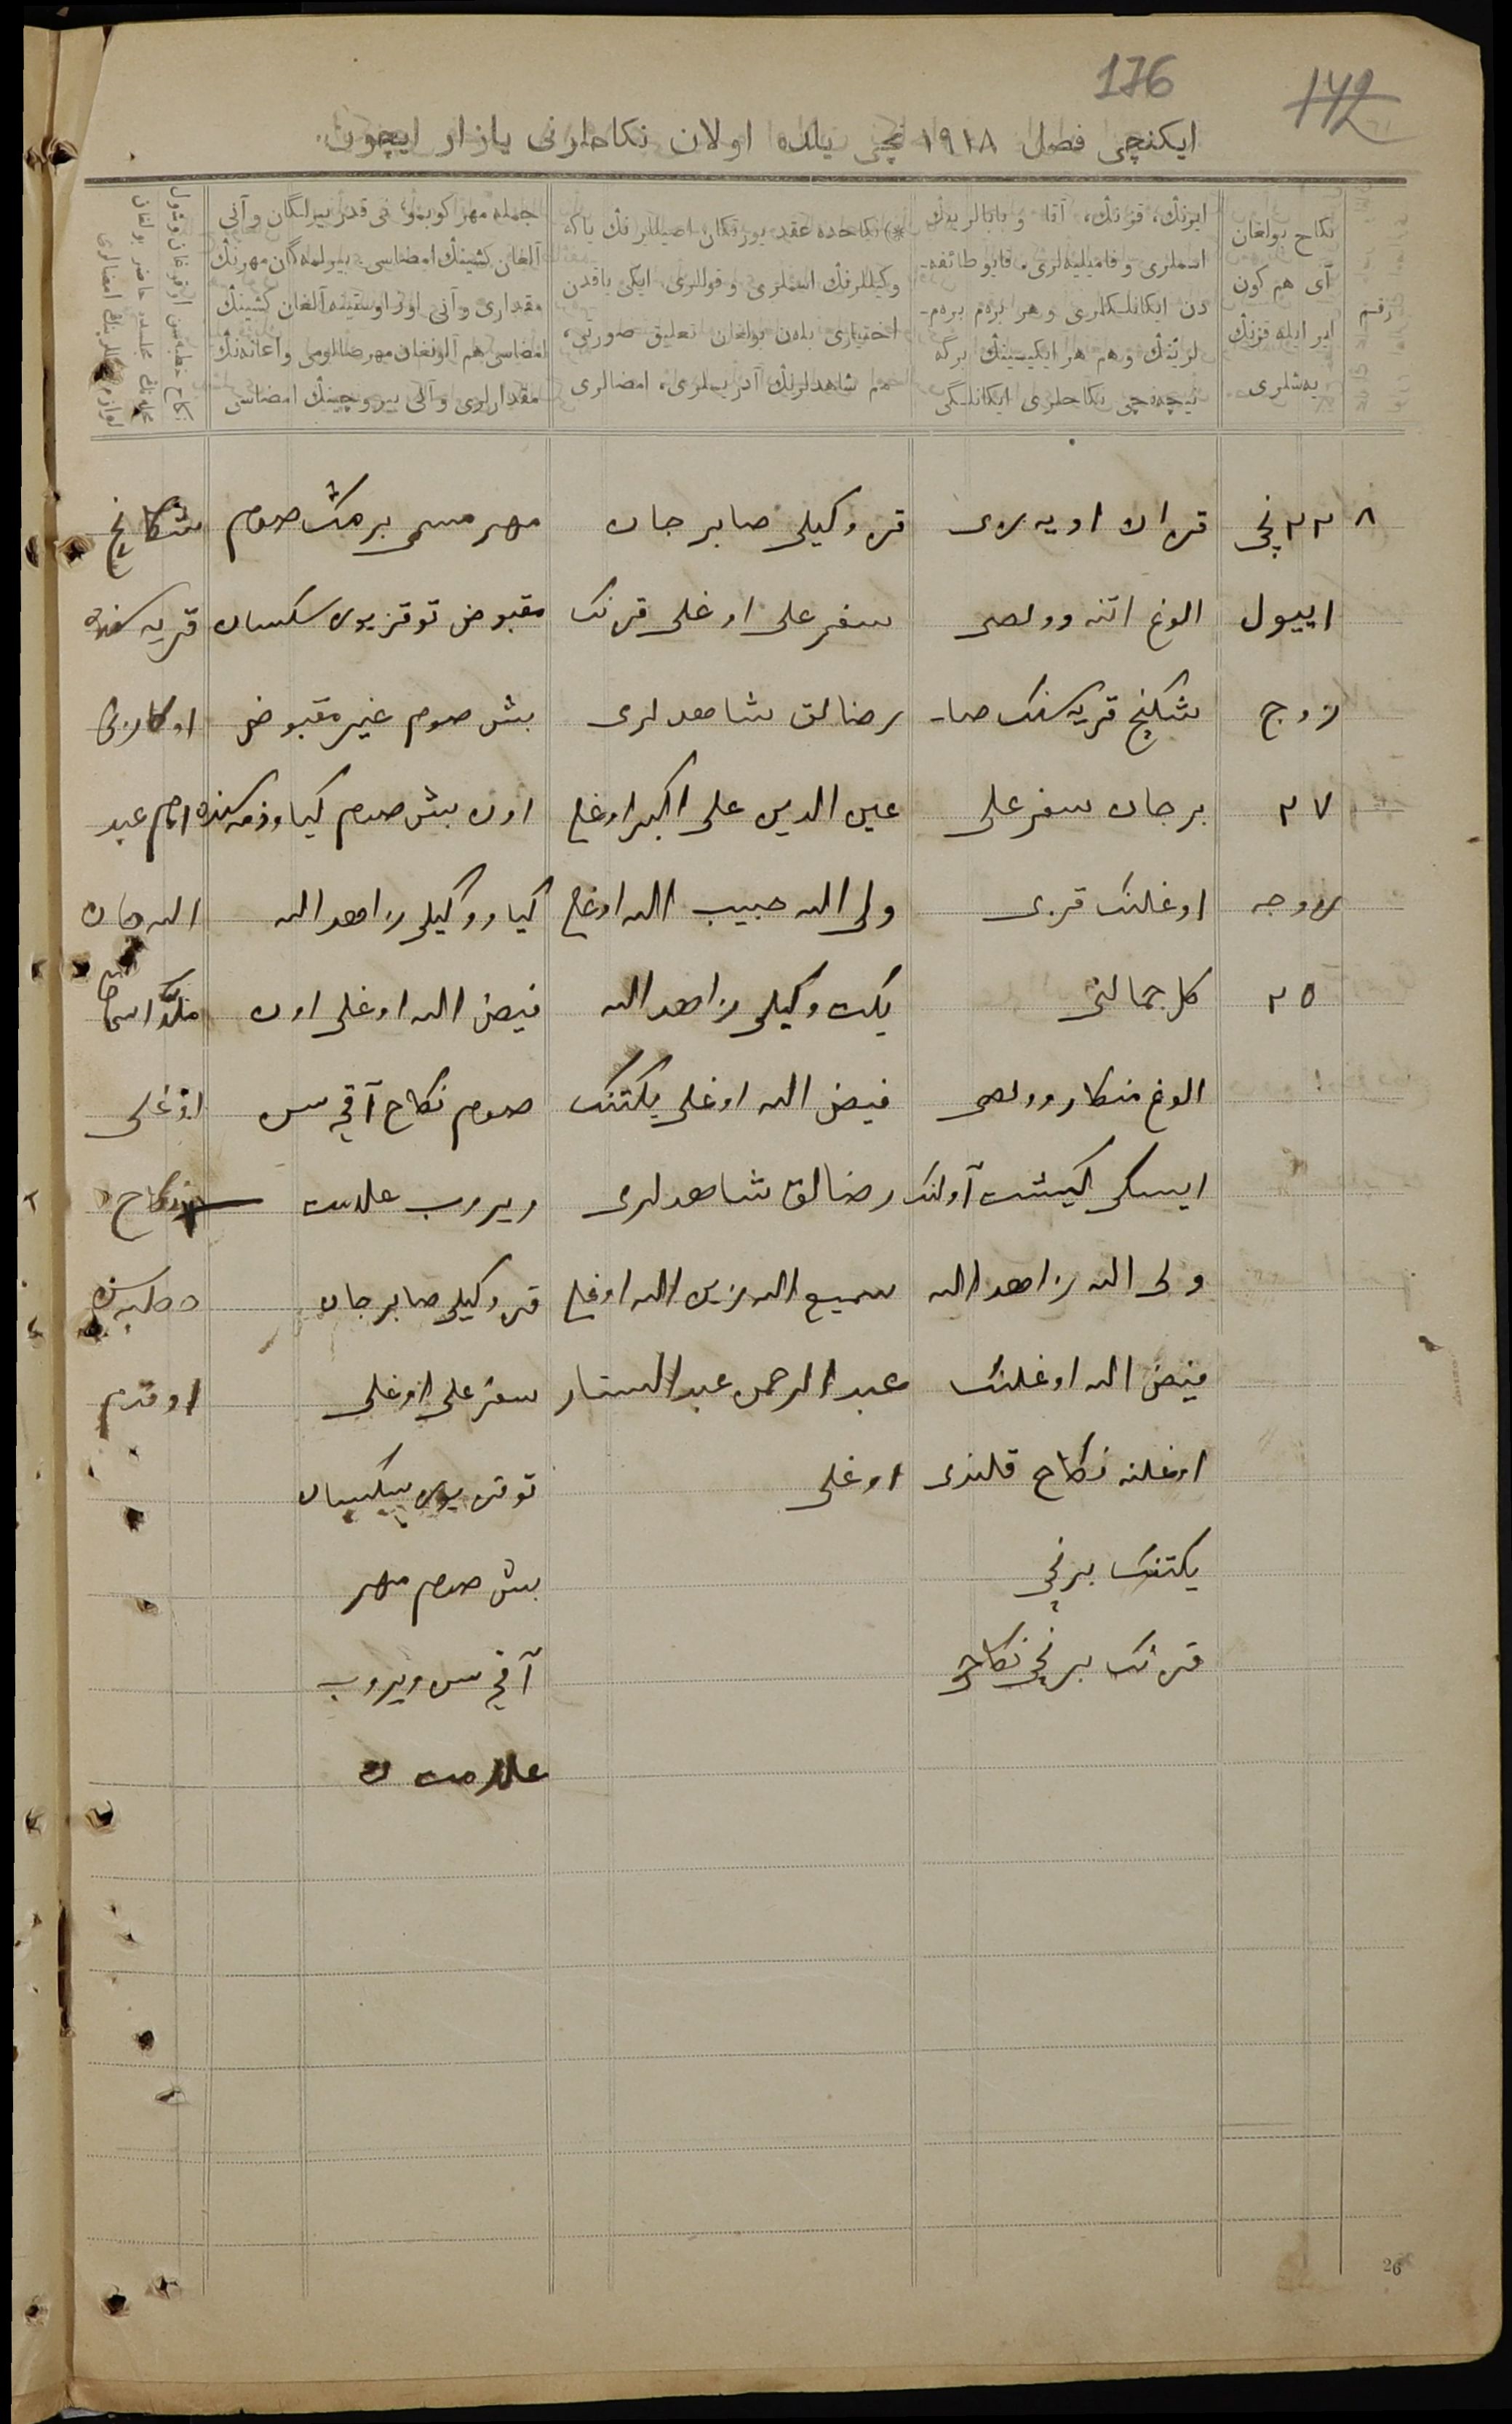 176
142
ایکنچی فصل ۱۹۱۸ نچی یلده اولان نکاحلرنی یازار ایچون.
رقم
نکاح بولغان
آی هم کون
ایر ایله قزنڭ
یەشلری
ایرنڭ، قزنڭ، آتا و بابالرینڭ
اسملری و فامیلیەلری. قایو طائفه-
دن ایکانلکلری و هر برەم برەم-
لرینڭ و هم هر ایکیسینڭ برگه
نیچەنچی نکاحلری ایکانلگی
*) نکاحده عقد یورتکان اصیللرنڭ یاکه
وکیللرنڭ اسملری و قوللری. ایکی یاقدن
اختیاری بلەن بولغان تعلیق صورتی،
هم شاهدلرنڭ آدرسلری، امضالری
جمله مهر کوبمو؛ نی قدر بیرلگان و آنی
آلغان کشینڭ امضاسی. بیرلمەگان مهرنڭ
مقداری و آنی اوز اوستینه آلغان کشینڭ
امضاسی هم آلونغان مهر صالاومی و اعانەنڭ
مقدارلری و آنی بیروچینڭ امضاسی
نکاح خطبەسن اوقوغان و قبول
مجلسنڭ مجلسده حاضر بولغان
۸
۲۳ نچی
اییول
زوج
۲۷
زوجه
۲۵
قزان اویازی
الوغ اتنه وولصی
شکنچ قریەسنڭ صا-
برجان سفرعلی
اوغلنڭ قزی
کل جمالنی
الوغ منکار وولصی
ایسکی کیشت آولنڭ
ولی الله زاهد الله
فیض الله اوغلنڭ
اوغلنه نکاح قلندی
یکتنڭ برنچی
قزنڭ برنچی نکاحی
قز وکیلی صابر جان
سفرعلی اوغلی قزنڭ
رضالق شاهدلری
عین الدین علی اکبر اوغلی
ولی الله حبیب الله اوغلی
یکت وکیلی زاهد الله
فیض الله اوغلی یکتنڭ
رضالق شاهدلری
سمیع الله زین الله اوغلی
عبد الرحمن عبد الستار
اوغلی
مهر مسمی بر مڭ صوم
مقبوض توقز یوز سکسان
بش صوم غیر مقبوض
اون بش صوم کیاو ذمەسنده
کیاو وکیلی زاهد الله
فیض الله اوغلی اون
صوم نکاح آقچەسن
ویروب علامت
قز وکیلی صابر جان
سفرعلی اوغلی
توقز یوز سکسان
بش صوم مهر
آقچەسن ویروب
علامت
شکانچ
قریەسنده
امام عبد
الله جان
اوغلی
نکاح
خطبەسن
اوقدم
26